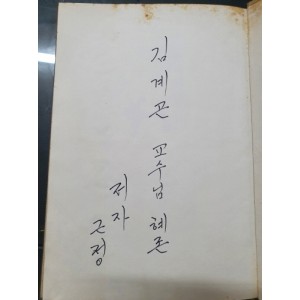 김계곤 교수님 혜존
저자
근정